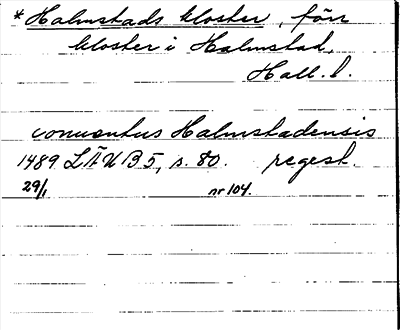 * Halmstads kloster, förr
kloster i Halmstad,
Hall. l.
conventus Halmstadensis
1489 LÄUB 5, s. 80. regest.
29/1 nr 104.